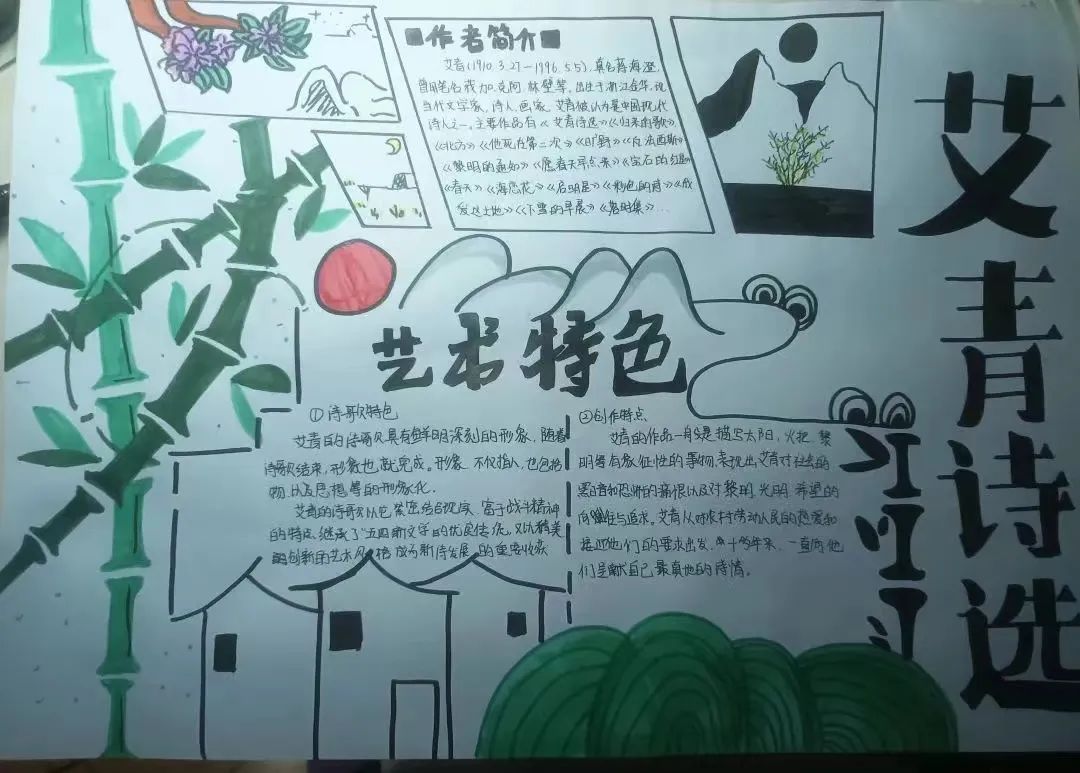 作者简介
艾青(1910.3.27－1996.5.5),真名蒋海澄,
曾用笔名莪加、克阿、林壁等。出生于浙江金华,现
当代文学家、诗人、画家。艾青被认为是中国现代
诗人之一。主要作品有《艾青诗选》《归来的歌》
《北方》《他死在第二次》《旷野》《反法西斯》
《黎明的通知》《愿春天早点来》《宝石的红星》
《春天》《海岬上》《启明星》《彩色的诗》《
发达土地》《下雪的早晨》
艾青诗选
艺术特色
①诗歌特色
艾青的诗歌具有鲜明深刻的形象,随着
诗歌结束,形象也就完成。形象不仅指人,也包括
物,以及思想等的形象化。
艾青的诗歌以它紧密结合现实、富于战斗精神
的特点继承了"五四新文学的优良传统,又以精美
创新的艺术风格成为新诗发展的重要收获
②创作特点
艾青的作品一般是描写太阳,火把,黎
明等有象征性的事物,表现出艾青对社会的
黑暗和恐怖的痛恨以及对黎明、光明、希望的
向往与追求。艾青从对农村劳动人民的热爱和
接近他们的要求出发,几十多年来,一直向他
们呈献自己最真挚的诗情。